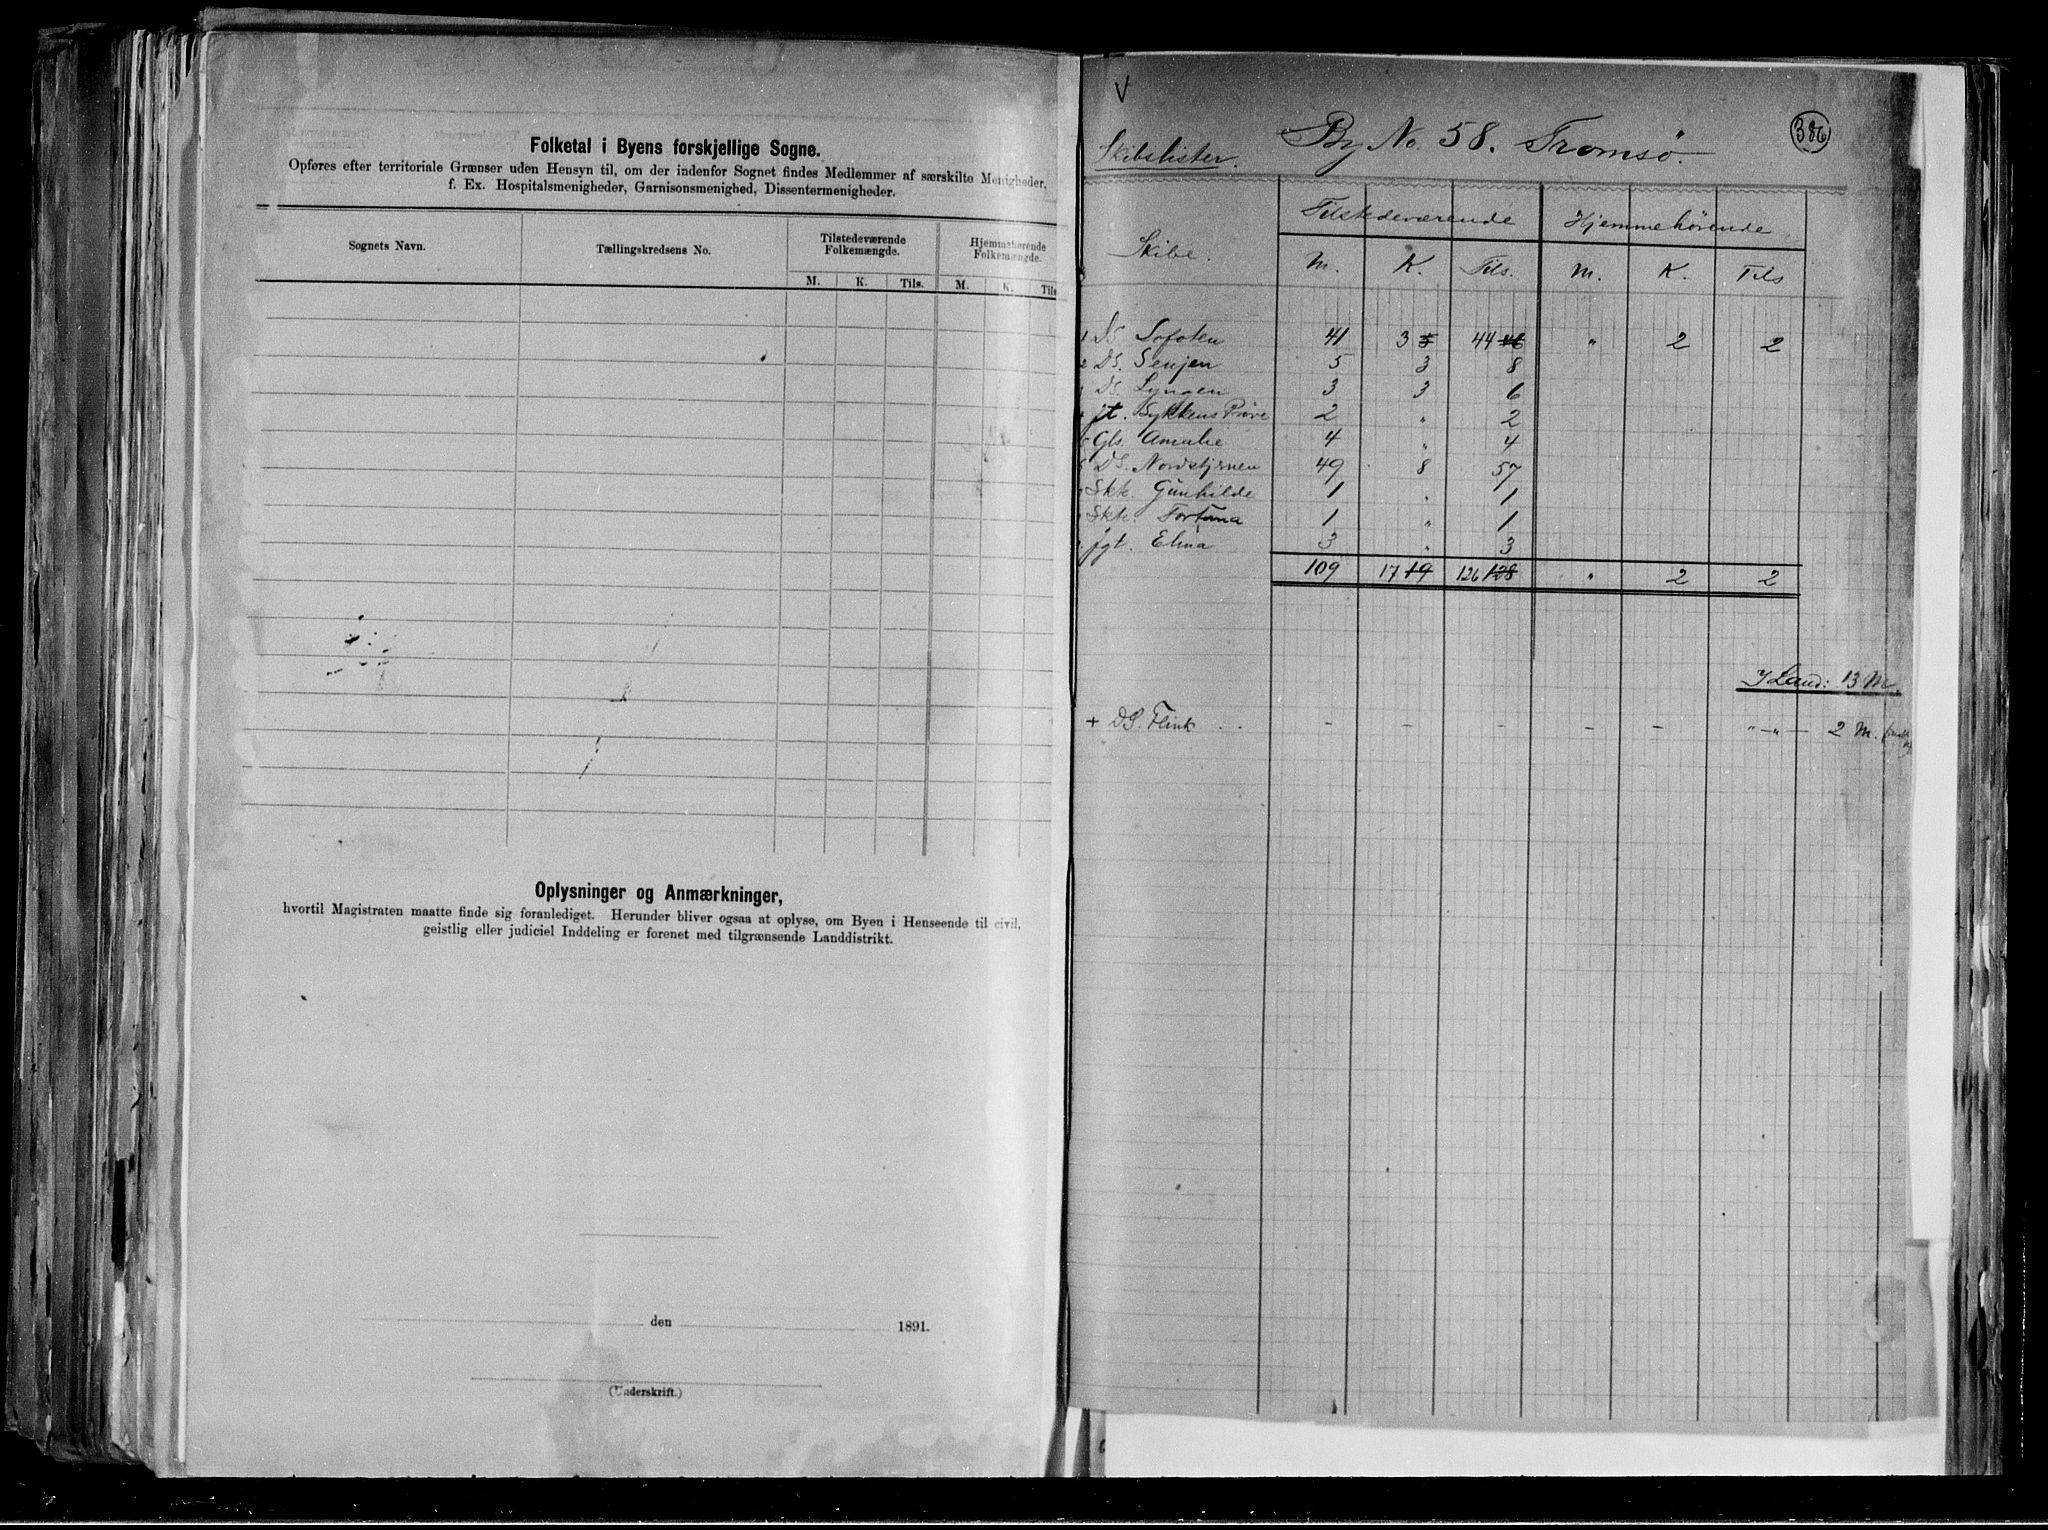 Folketal i Byens forskjellige Sogne.
Opføres efter territoriale Grænser uden Hensyn til, om der indenfor Sognet findes Medlemmer af særskilte Menigheder,
f. Ex. Hospitalsmenigheder, Garnisonsmenighed, Dissentermenigheder.
Sognets Navn. Tællingskredsens No. Tilstedeværende Folkemængde. Hjemmehørende Folkemængde.
M. K. Tils. M. K. Tils
Oplysninger og Anmærkninger,
hvortil Magistraten maatte finde sig foranlediget. Herunder bliver ogsaa at oplyse, om Byen i Henseende til civil,
geistlig eller judiciel Inddeling er forenet med tilgrænsende Landdistrikt.
den 1891.
(Underskrift.)
V
386
By No. 58. Tromsø.
Skibslister.
Tilstedeværende Hjemmehørende
Skibe. M. K. Tils. M. K. Tils
1 DS Lofoten 41 3 5 44 46 " 2 2
2 DS. Senjen 5 3 8
DS. Lyngen 3 3 6
jt. Lykkens Prøve 2 " 2
5 Gls. Amalie 4 " 4
6 DS. Nordstjernen 49 8 57
Skk. Gunhilde 1 " 1
Skk. Fortuna 1 " 1
jgt. Elina 3 " 3
109 17 19 126 128 " 2 2
I Land: 13 M.
+ DS. Flink - - - - - " - " - 2 M.